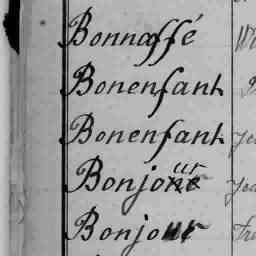 Bonnaffé
Bonenfant
Bonenfant
Bonjour
Bonjour